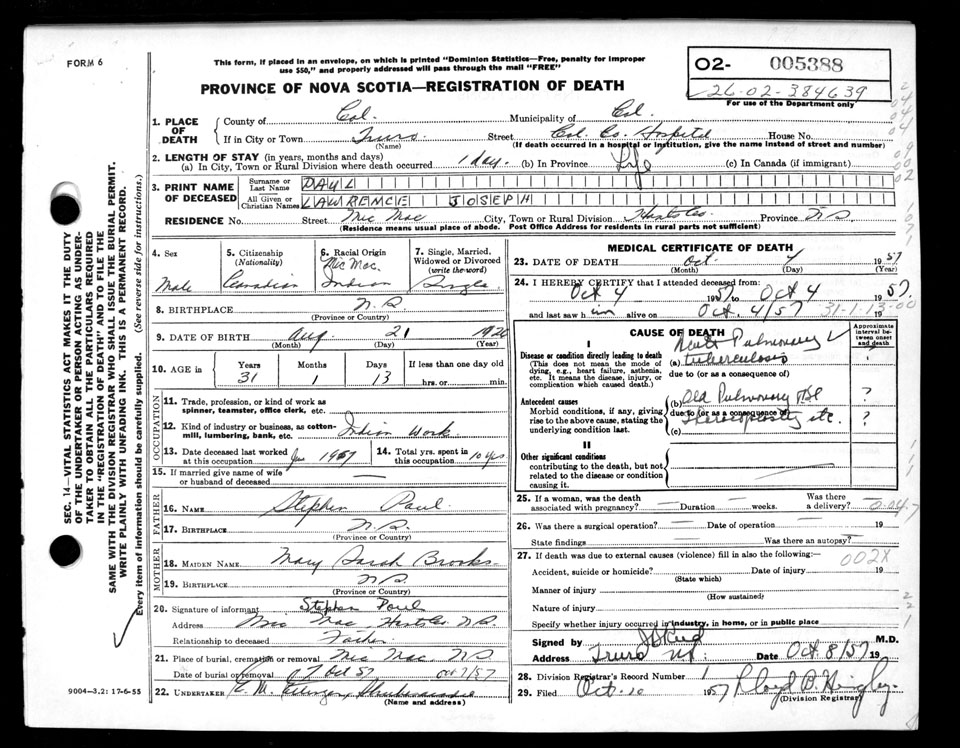 FORM 6
This form, if placed in an envelope, on which is printed "Dominion Statistics—Free, penalty for improper
use $50," and properly addressed will pass through the mail "FREE"
O2- 005388
26-02-384639
For use of the Department only
PROVINCE OF NOVA SCOTIA—REGISTRATION OF DEATH
1. PLACE OF DEATH
County of Col. Municipality of Col.
If in City or Town Truro Street Col. Co. Hospital House No.
(Name) (If death occurred in a hospital or institution, give the name instead of street and number)
2. LENGTH OF STAY (in years, months and days)
(a) In City, Town or Rural Division where death occurred 1 day. (b) In Province Life (c) In Canada (if immigrant)
3. PRINT NAME OF DECEASED
Surname or Last Name PAUL
All Given or Christian Names LAWRENCE JOSEPH
RESIDENCE No. Street Mic Mac City, Town or Rural Division Hants Co. Province N.S.
(Residence means usual place of abode. Post Office Address for residents in rural parts not sufficient)
4. Sex
Male
5. Citizenship
(Nationality)
Canadian
6. Racial Origin
Mic Mac.
Indian
7. Single, Married,
Widowed or Divorced
(write the word)
Single
8. BIRTHPLACE N.S.
(Province or Country)
9. DATE OF BIRTH Aug. 21 1926
(Month) (Day) (Year)
10. AGE in
Years Months Days If less than one day old
31 1 13 hrs. or min.
OCCUPATION
11. Trade, profession, or kind of work as
spinner, teamster, office clerk, etc.
12. Kind of industry or business, as cotton-
mill, lumbering, bank, etc. Indian Work
13. Date deceased last worked
at this occupation 1957
14. Total yrs. spent in
this occupation 10 yrs
15. If married give name of wife
or husband of deceased
FATHER
16. NAME Stephen Paul
17. BIRTHPLACE N.S.
(Province or Country)
MOTHER
18. MAIDEN NAME Mary Sarah Brooks
19. BIRTHPLACE N.S.
(Province or Country)
20. Signature of informant Stephen Paul
Address Mic Mac, Hants Co. N.S.
Relationship to deceased Father
21. Place of burial, cremation or removal Mic Mac N.S
Date of burial or removal 7 Oct 57 Oct 7/57
22. UNDERTAKER E. M.
(Name and address)
MEDICAL CERTIFICATE OF DEATH
23. DATE OF DEATH Oct. 4 1957
(Month) (Day) (Year)
24. I HEREBY CERTIFY that I attended deceased from:
Oct 4 1957 to Oct 4 1957.
and last saw him alive on Oct. 4/57 19
31-1-13-00
CAUSE OF DEATH
Approximate
interval be-
tween onset
and death
I
Disease or condition directly leading to death
(This does not mean the mode of
dying, e.g., heart failure, asthenia,
etc. It means the disease, injury, or
complication which caused death.)
Acute Pulmonary
(a) tuberculosis
due to (or as a consequence of)
Antecedent causes
Morbid conditions, if any, giving
rise to the above cause, stating the
underlying condition last.
(b) Old Pulmonary TBC ?
due to (or as a consequence of)
Thoracoplasty etc. ?
(c)
II
Other significant conditions
contributing to the death, but not
related to the disease or condition
causing it.
25. If a woman, was the death
associated with pregnancy? — Duration — weeks.
Was there
a delivery? —
26. Was there a surgical operation? — Date of operation — 19
State findings — Was there an autopsy? —
27. If death was due to external causes (violence) fill in also the following:—
002X
Accident, suicide or homicide? Date of injury 19
(State which)
Manner of injury
(How sustained)
Nature of injury
Specify whether injury occurred in industry, in home, or in public place
Signed by M.D.
Address Truro NS. Date Oct 8/57 19
28. Division Registrar's Record Number 1
29. Filed Oct. 10 1957 Lloyd B Hingley.
(Division Registrar)
SEC. 14—VITAL STATISTICS ACT MAKES IT THE DUTY
OF THE UNDERTAKER OR PERSON ACTING AS UNDER-
TAKER TO OBTAIN ALL THE PARTICULARS REQUIRED
IN THE "REGISTRATION OF DEATH" AND TO FILE THE
SAME WITH THE DIVISION REGISTRAR WHO SHALL ISSUE THE BURIAL PERMIT.
WRITE PLAINLY WITH UNFADING INK. THIS IS A PERMANENT RECORD.
Every item of information should be carefully supplied. (See reverse side for instructions.)
9004-3.2: 17-6-55